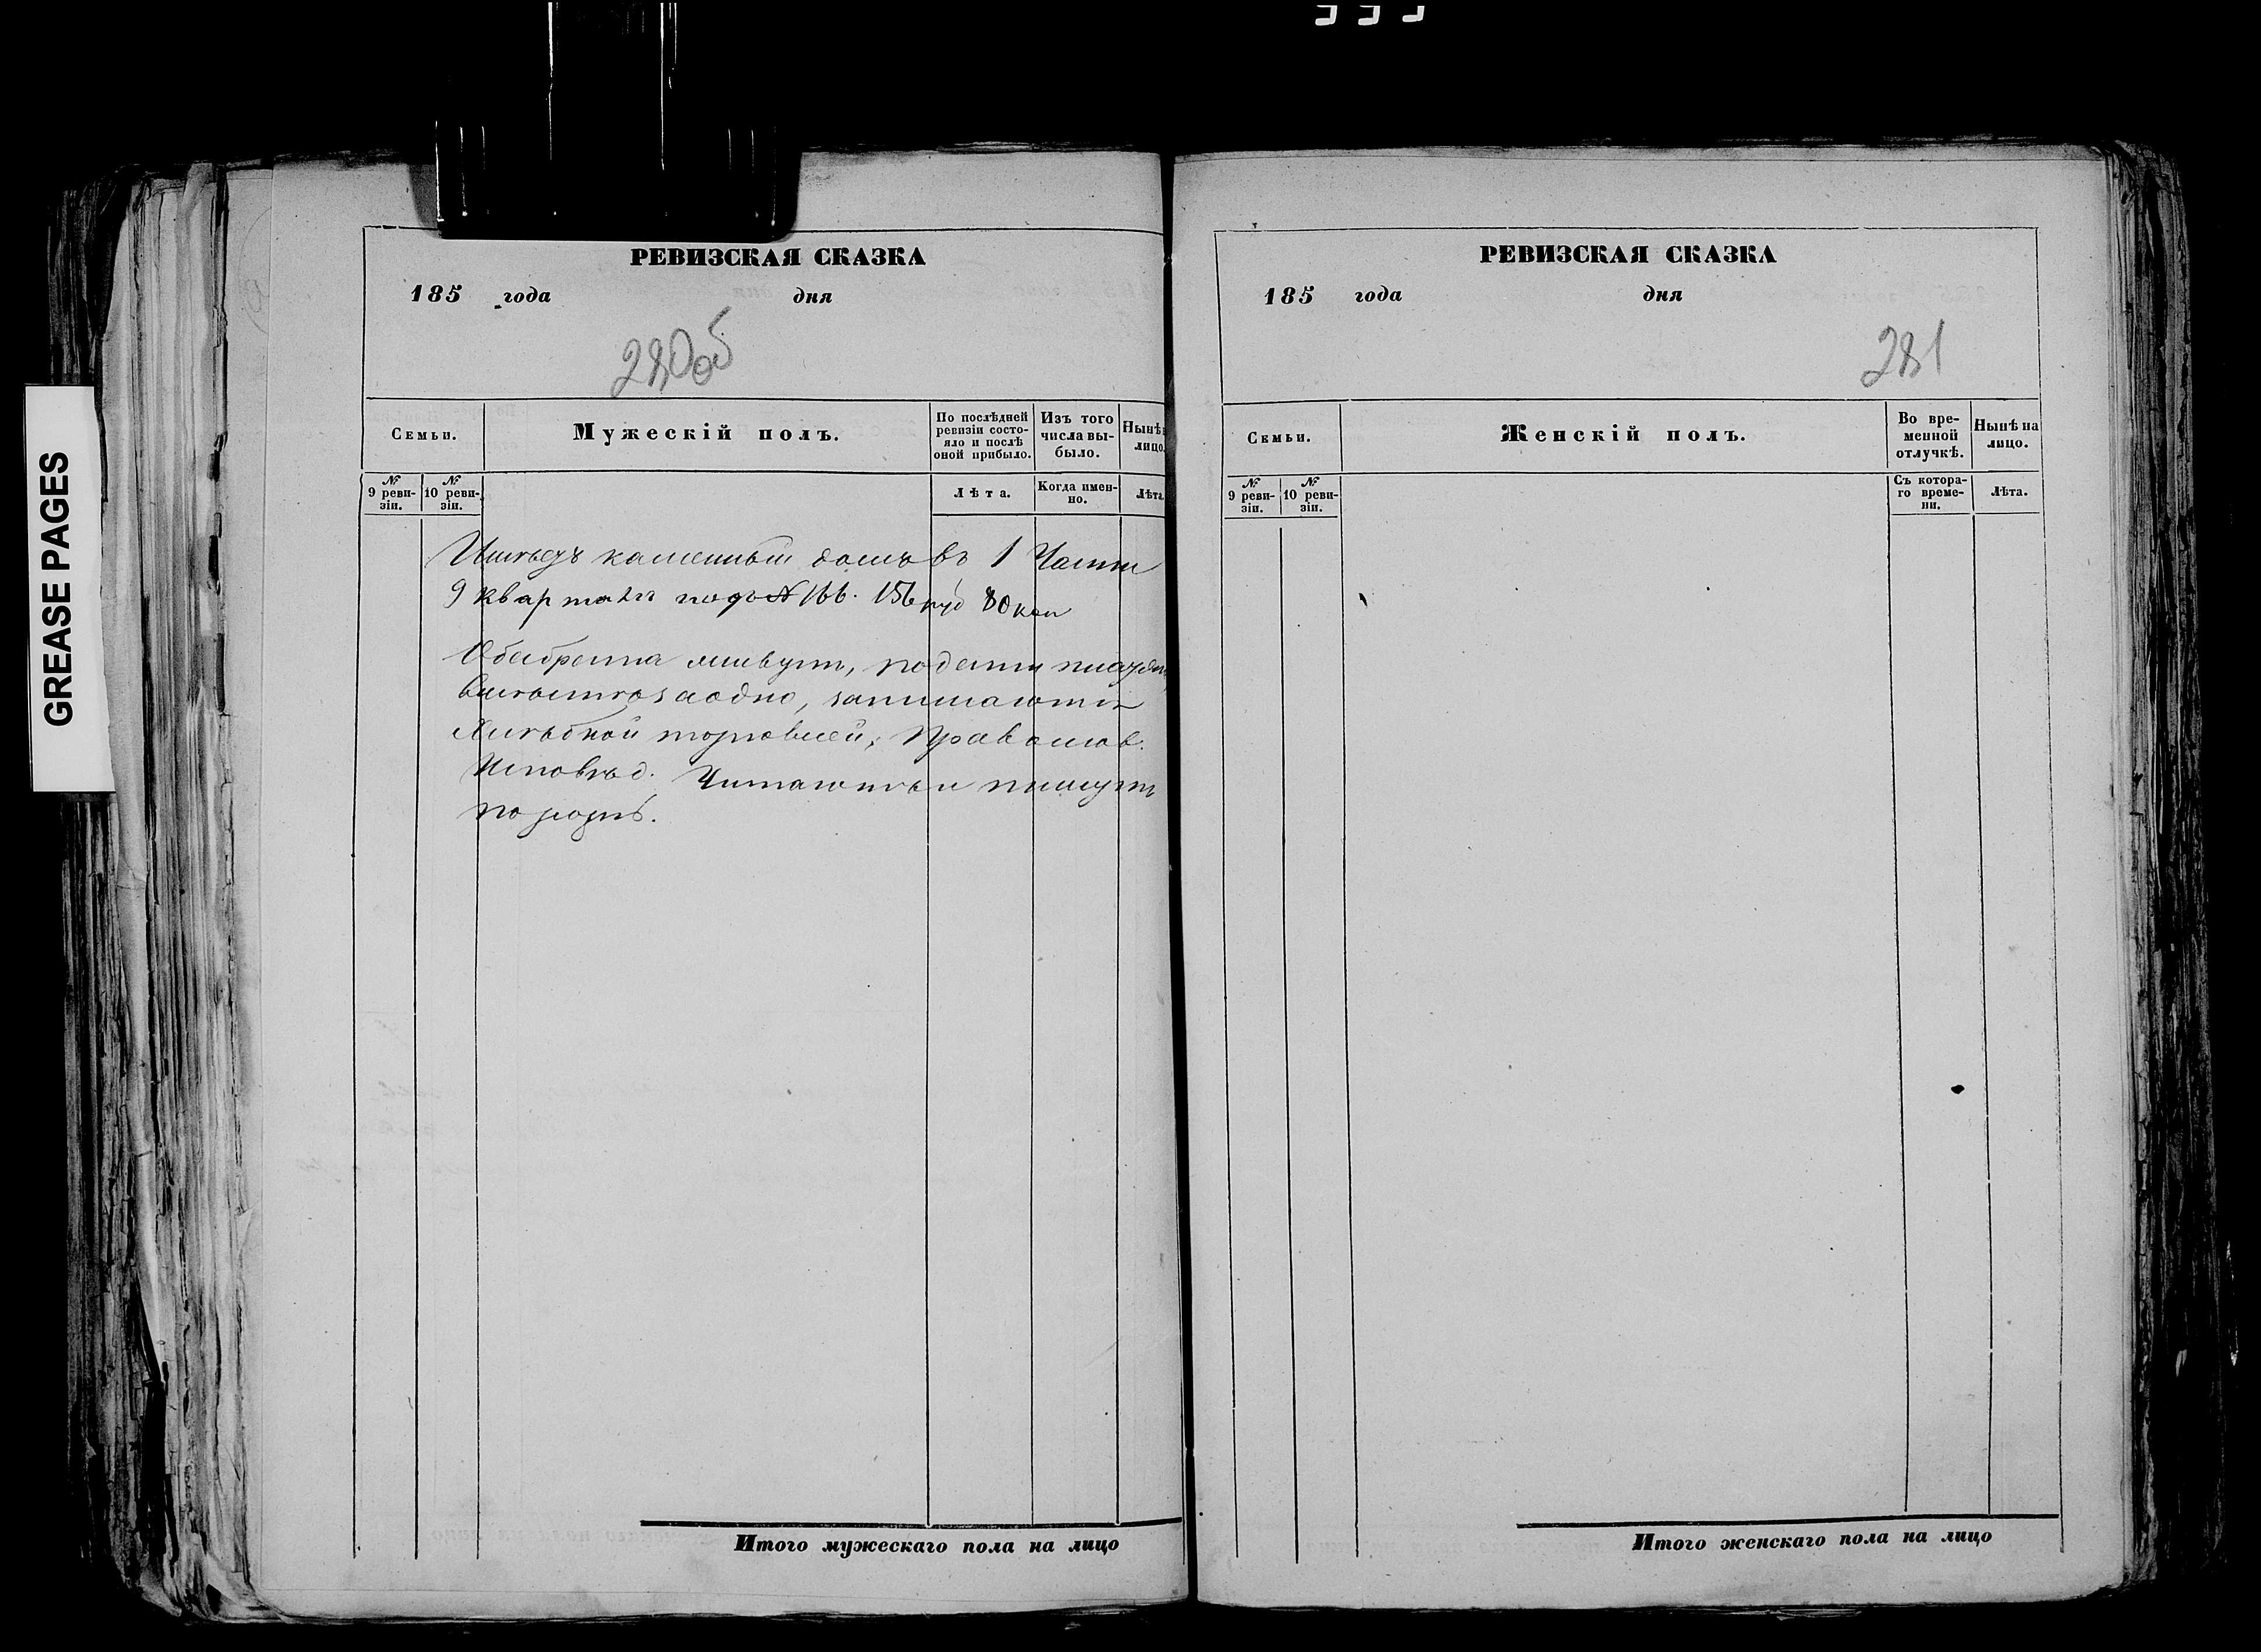 GREASE PAGES
РЕВИЗСКАЯ СКАЗКА
185 года дня
280об
Семьи.
Мужескій полъ.
По послѣдней ревизіи состо-
яло и послѣ
оной прибыло.
Изъ того
числа вы-
было.
Нынѣ
лицо.
№
9 реви-
зіи.
№
10 реви-
зіи.
Лѣта.
Когда имен-
но.
Лѣта.
Имѣетъ каменный домъ въ 1 Части
9 Квартала подъ № 166. 156 руб 80 коп
живутъ, подати
заодно, занимаются
Хлѣбной торговлей, Православ.
Исповѣд. Читаютъ и пишутъ
по
Итого мужескаго пола на лицо
РЕВИЗСКАЯ СКАЗКА
185 года дня
281
Семьи.
Женскій полъ.
Во вре-
менной
отлучкѣ.
Нынѣ на
лицо.
№
9 реви-
зіи.
№
10 реви-
зіи.
Съ котора-
го време-
ни.
Лѣта.
Итого женскаго пола на лицо